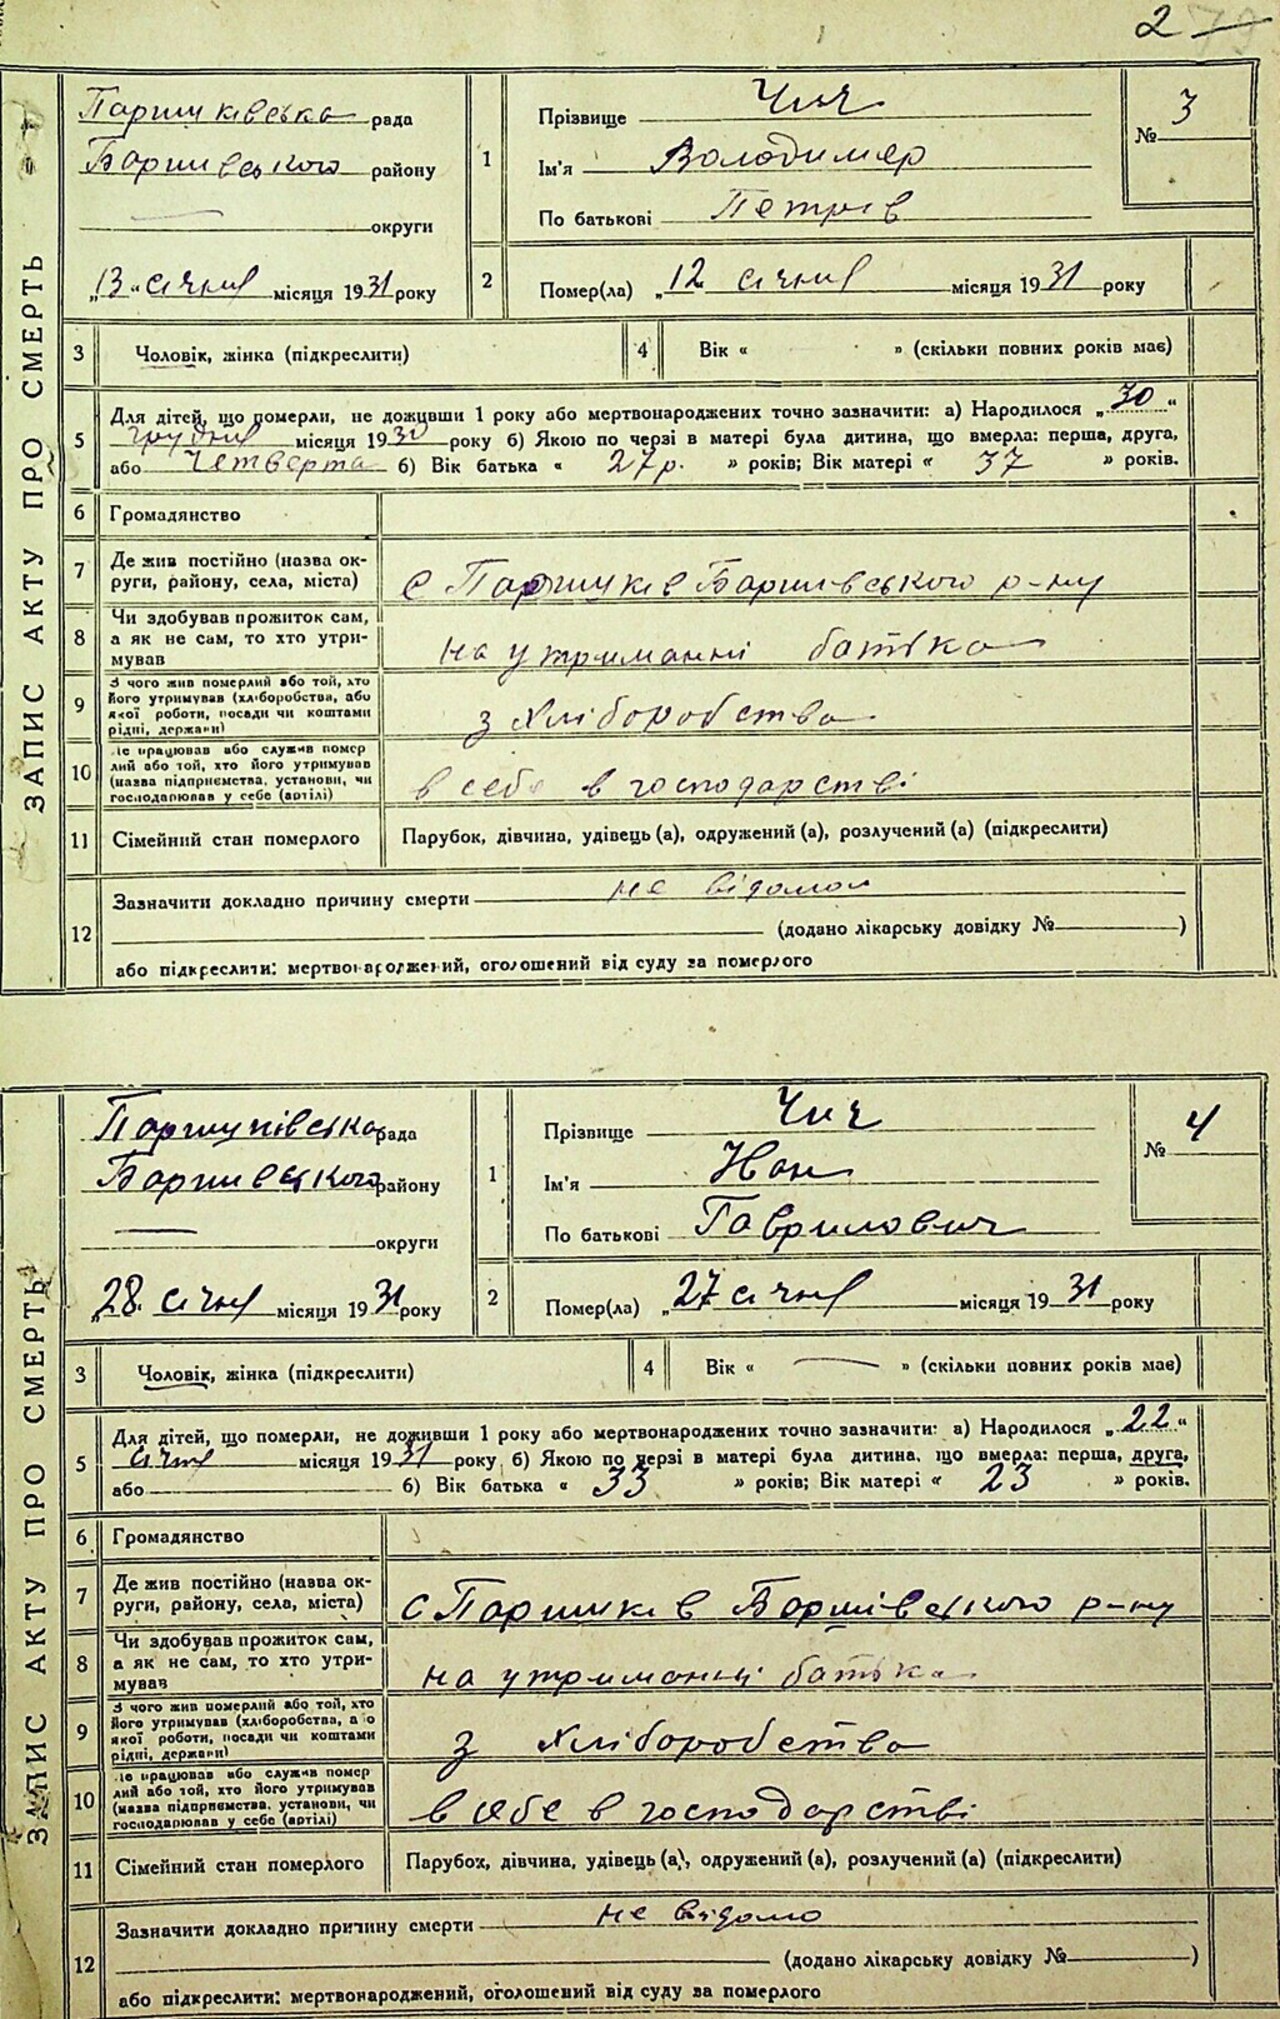 2
ЗАПИС АКТУ ПРО СМЕРТЬ
Паришківська рада
Баришівського району
округи
„13“ січня місяця 1931 року
1
Прізвище Чич
Ім'я Володимер
По батькові Петрів
№ 3
2
Помер(ла) „12 січня місяця 1931 року
3
Чоловік, жінка (підкреслити)
4
Вік « » (скільки повних років має)
5
Для дітей, що померли, не доживши 1 року або мертвонароджених точно зазначити: а) Народилося „30“
грудня місяця 1930 року б) Якою по черзі в матері була дитина, що вмерла: перша, друга,
або четверта б) Вік батька « 27р. » років; Вік матері « 37 » років.
6
Громадянство
7
Де жив постійно (назва ок-
руги, району, села, міста)
с Паришків Баришівського р-ну
8
Чи здобував прожиток сам,
а як не сам, то хто утри-
мував
на утриманні батька
9
З чого жив померлий або той, хто
його утримував (хліборобства, або
якої роботи, посади чи коштами
рідні, держави)
з хліборобства
10
Де працював або служив помер
лий або той, хто його утримував
(назва підприємства, установи, чи
господарював у себе (артілі)
в себе в господарстві
11
Сімейний стан померлого
Парубок, дівчина, удівець (а), одружений (а), розлучений (а) (підкреслити)
12
Зазначити докладно причину смерти не відомо
(додано лікарську довідку № )
або підкреслити: мертвонароджений, оголошений від суду за померлого
ЗАПИС АКТУ ПРО СМЕРТЬ
Паришківська рада
Баришівського району
округи
„28“ січня місяця 1931 року
1
Прізвище Чич
Ім'я
По батькові Гаврилович
№ 4
2
Помер(ла) „27 січня місяця 1931 року
3
Чоловік, жінка (підкреслити)
4
Вік « — » (скільки повних років має)
5
Для дітей, що померли, не доживши 1 року або мертвонароджених точно зазначити: а) Народилося „22“
січня місяця 1931 року б) Якою по черзі в матері була дитина, що вмерла: перша, друга,
або б) Вік батька « 33 » років; Вік матері « 23 » років.
6
Громадянство
7
Де жив постійно (назва ок-
руги, району, села, міста)
с Паришків Баришівського р-ну
8
Чи здобував прожиток сам,
а як не сам, то хто утри-
мував
на утриманні батька
9
З чого жив померлий або той, хто
його утримував (хліборобства, або
якої роботи, посади чи коштами
рідні, держави)
з хліборобства
10
Де працював або служив помер
лий або той, хто його утримував
(назва підприємства, установи, чи
господарював у себе (артілі)
в себе в господарстві
11
Сімейний стан померлого
Парубок, дівчина, удівець (а), одружений (а), розлучений (а) (підкреслити)
12
Зазначити докладно причину смерти не відомо
(додано лікарську довідку № )
або підкреслити: мертвонароджений, оголошений від суду за померлого